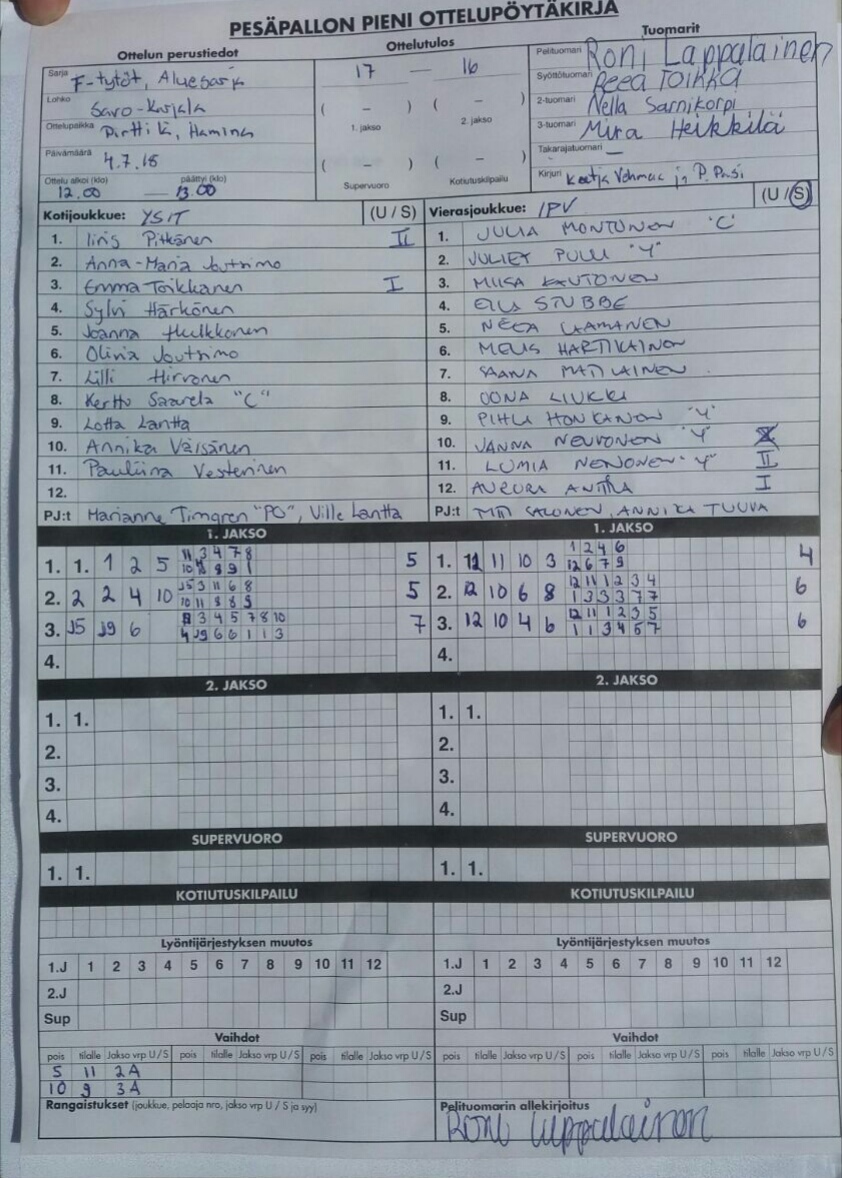 PESÄPALLON PIENI OTTELUPÖYTÄKIRJA
Ottelun perustiedot
Sarja F-tytöt, Aluesarja
Lohko Savo-Karjala
Ottelupaikka Pirtti k, Hamina
Päivämäärä 4.7.18
Ottelu alkoi (klo) päättyi (klo)
12.00 — 13.00
Ottelutulos
17 — 16
( – ) ( – )
1. jakso 2. jakso
( – ) ( – )
Supervuoro Kotiutuskilpailu
Tuomarit
Pelituomari Roni Lappalainen
Syöttötuomari Reea TOIKKA
2-tuomari Nella Sarnikorpi
3-tuomari Mira Heikkilä
Takarajatuomari —
Kirjuri Vohmae ja P. Pasi
Kotijoukkue: YSIT (U / S)
1. Iiris Pitkänen II
2. Anna-Maria Joutsimo
3. Emma Toikkanen I
4. Sylvi Härkönen
5. Joanna Hulkkonen
6. Olivia Joutsimo
7. Lilli Hirvonen
8. Kerttu Saarela "C"
9. Lotta Lantta
10. Annika Väisänen
11. Pauliina Vesterinen
12.
PJ:t Marianne Timgren "PO", Ville Lantta
Vierasjoukkue: IPV (U / S)
1. JULIA MONTONEN "C"
2. JULIET PULLI "Y"
3. MIISA KAUTONEN
4. ELLI STUBBE
5. NEEA LAAMANEN
6. MELIS HARTIKAINEN
7. SAANA MATILAINEN
8. OONA LIUKKU
9. PIHLA HONKANEN "Y"
10. JANNA NEUVONEN "Y"
11. LUMIA NENONEN "Y" II
12. AURORA ANTTILA I
PJ:t SALONEN, ANNIKA TUUVA
1. JAKSO
1. 1. 1 2 5 11 3 4 7 8 5
8 9 1
2. 2 2 4 10 J5 3 11 6 8 5
10 11 8 8 9
3. J5 J9 6 3 4 5 7 8 10 7
4 J9 6 6 1 1 3
4.
2. JAKSO
1. 1.
2.
3.
4.
SUPERVUORO
1. 1.
KOTIUTUSKILPAILU
Lyöntijärjestyksen muutos
1.J 1 2 3 4 5 6 7 8 9 10 11 12
2.J
Sup
Vaihdot
pois tilalle Jakso vrp U/S pois tilalle Jakso vrp U/S pois tilalle Jakso vrp U/S
5 11 2A
10 9 3A
Rangaistukset (joukkue, pelaaja nro, jakso vrp U / S ja syy)
1. JAKSO
1. 12 11 10 3 1 2 4 6 4
12 6 7 9
2. 12 10 6 8 12 11 1 2 3 4 6
1 3 3 3 7 7
3. 12 10 4 6 12 11 1 2 3 5 6
1 1 3 4 5 7
4.
2. JAKSO
1. 1.
2.
3.
4.
SUPERVUORO
1. 1.
KOTIUTUSKILPAILU
Lyöntijärjestyksen muutos
1.J 1 2 3 4 5 6 7 8 9 10 11 12
2.J
Sup
Vaihdot
pois tilalle Jakso vrp U/S pois tilalle Jakso vrp U/S pois tilalle Jakso vrp U/S
Pelituomarin allekirjoitus
Roni Lappalainen